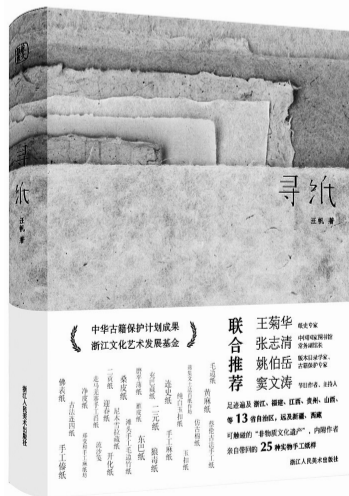 寻纸
汪帆 著
寻纸
汪帆 著
中华古籍保护计划成果
浙江文化艺术发展基金
联合推荐
王菊华 纸史专家
张志清 中国国家图书馆常务副馆长
姚伯岳 版本目录学家、古籍保护专家
窦文涛 节目作者、主持人
足迹遍及浙江、福建、江西、贵州、山西、
等 13 省自治区，远及新疆、西藏
可触碰的“非物质文化遗产”，内附作者
亲自带回的 25 种实物手工纸样
浙江人民美术出版社
毛边纸
黄麻纸
连史纸
手工麻纸
仿古棉纸
玉扣纸
狼毒纸
东巴纸
桑皮纸
二贡纸
迎春纸
尼木雪拉藏纸
开化纸
净皮纸
流沙笺
佛表纸
吉法连四纸
手工傣纸
浙江人民美术出版社